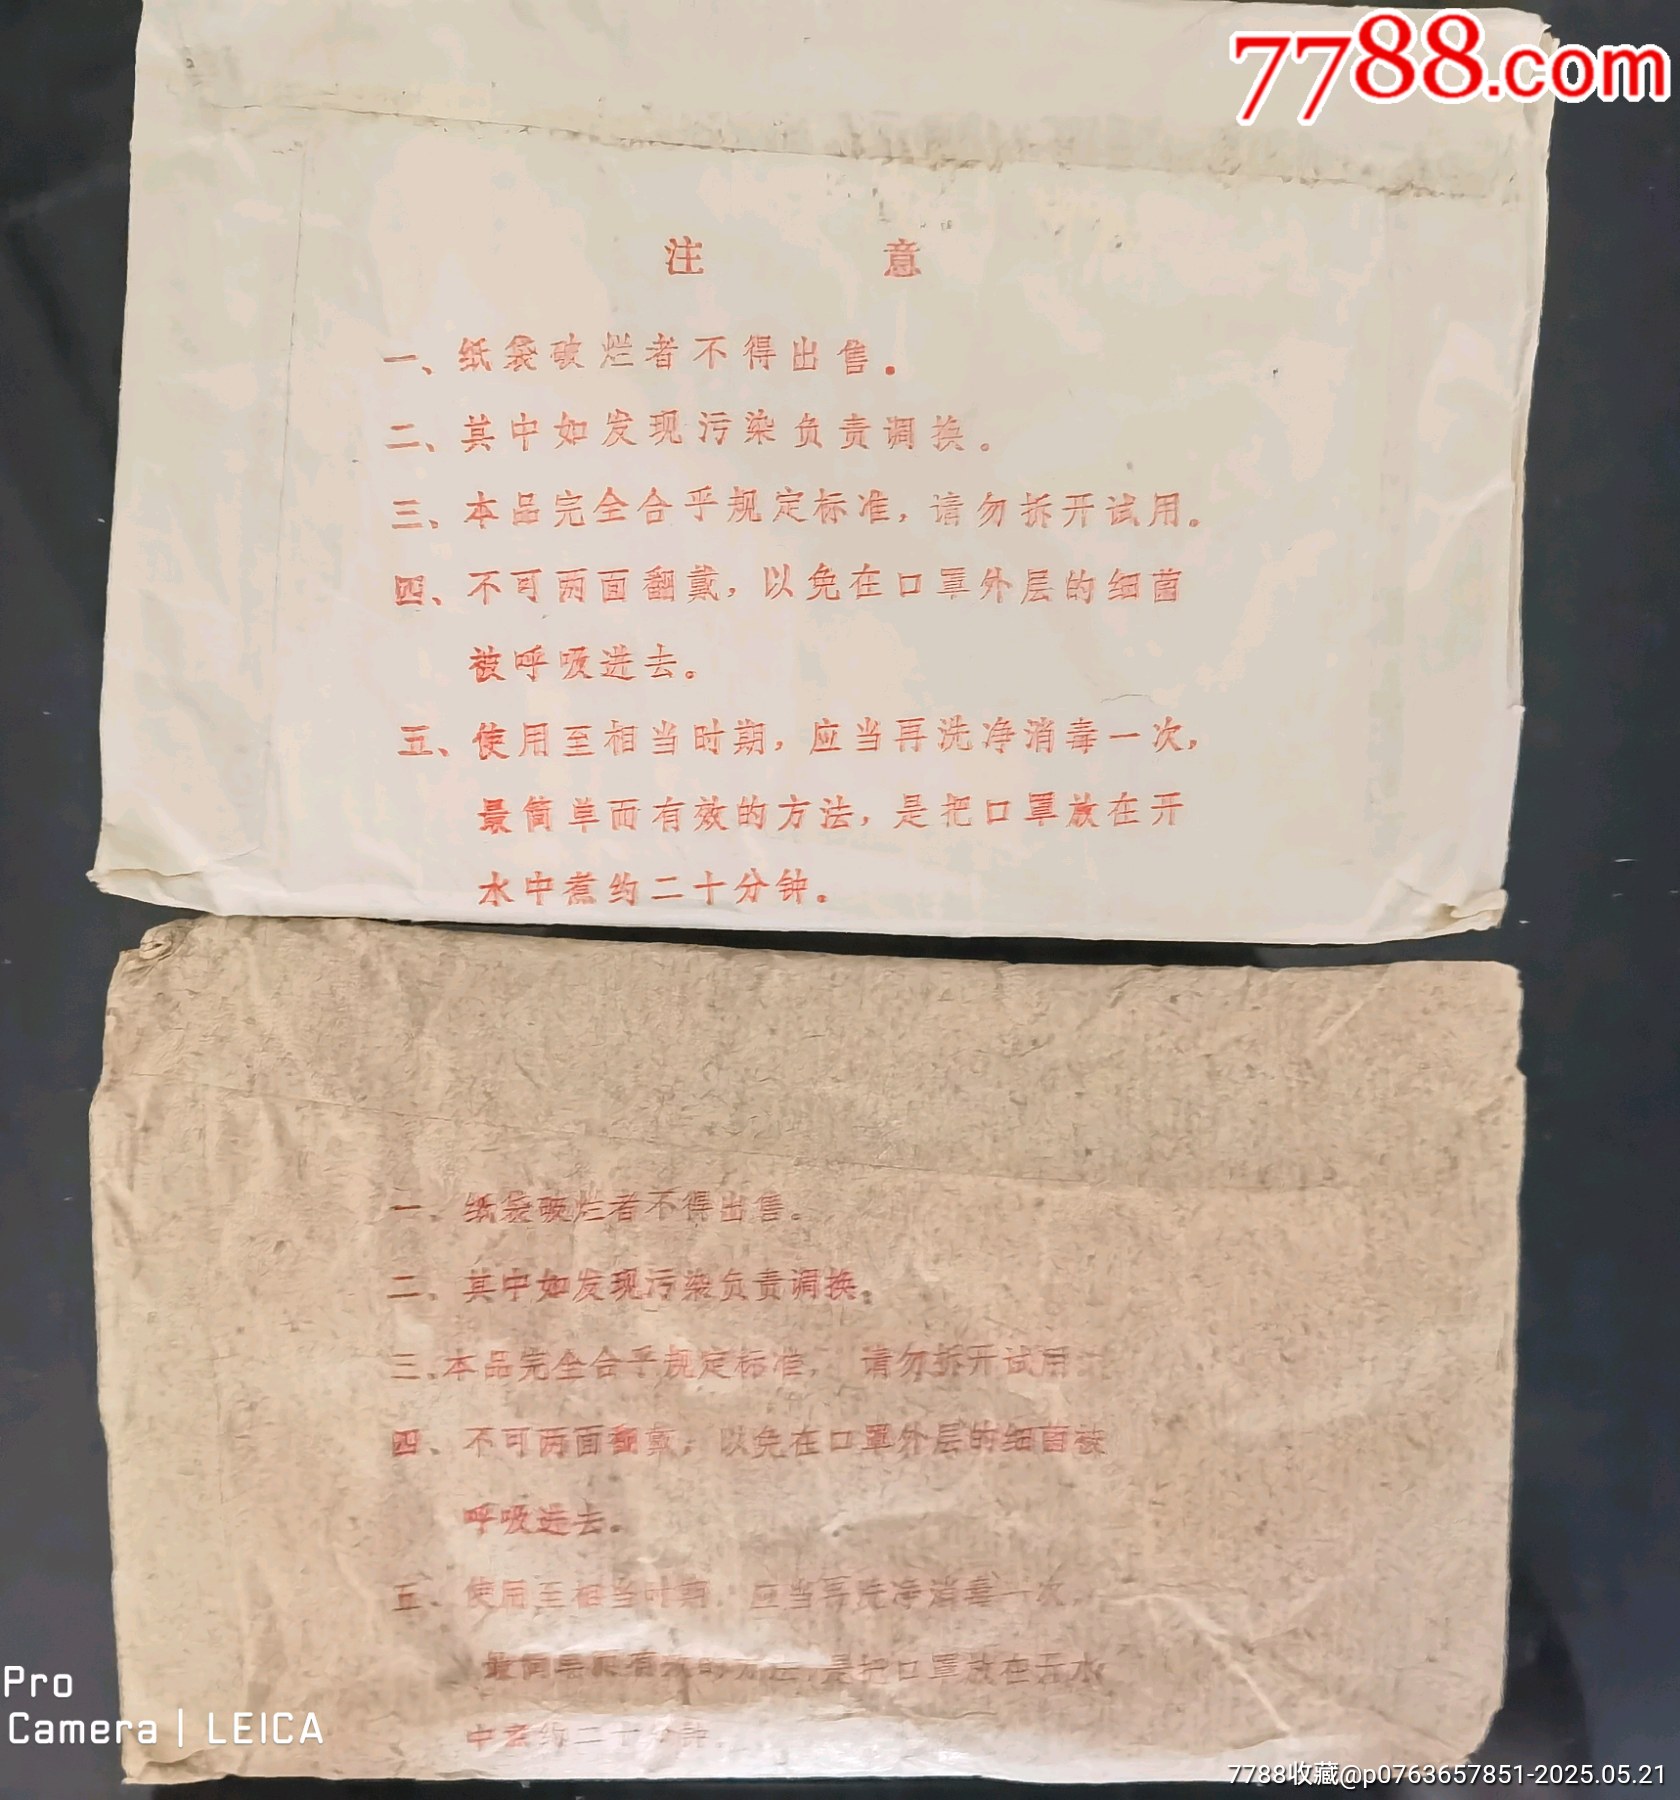 7788.com
注 意
一、纸袋破烂者不得出售。
二、其中如发现污染负责调换。
三、本品完全合乎规定标准，请勿拆开试用。
四、不可两面翻戴，以免在口罩外层的细菌
被呼吸进去。
五、使用至相当时期，应当再洗净消毒一次，
最简单而有效的方法，是把口罩放在开
水中煮约二十分钟。
一、纸袋破烂者不得出售。
二、其中如发现污染负责调换。
三、本品完全合乎规定标准， 请勿拆开试用
四、不可两面翻戴，以免在口罩外层的细菌被
呼吸进去。
五、使用至相当时期，应当再洗净消毒一次，
最简单而有效的方法，是把口罩放在开水
中煮约二十分钟。
Pro
Camera | LEICA
7788收藏@p0763657851-2025.05.21